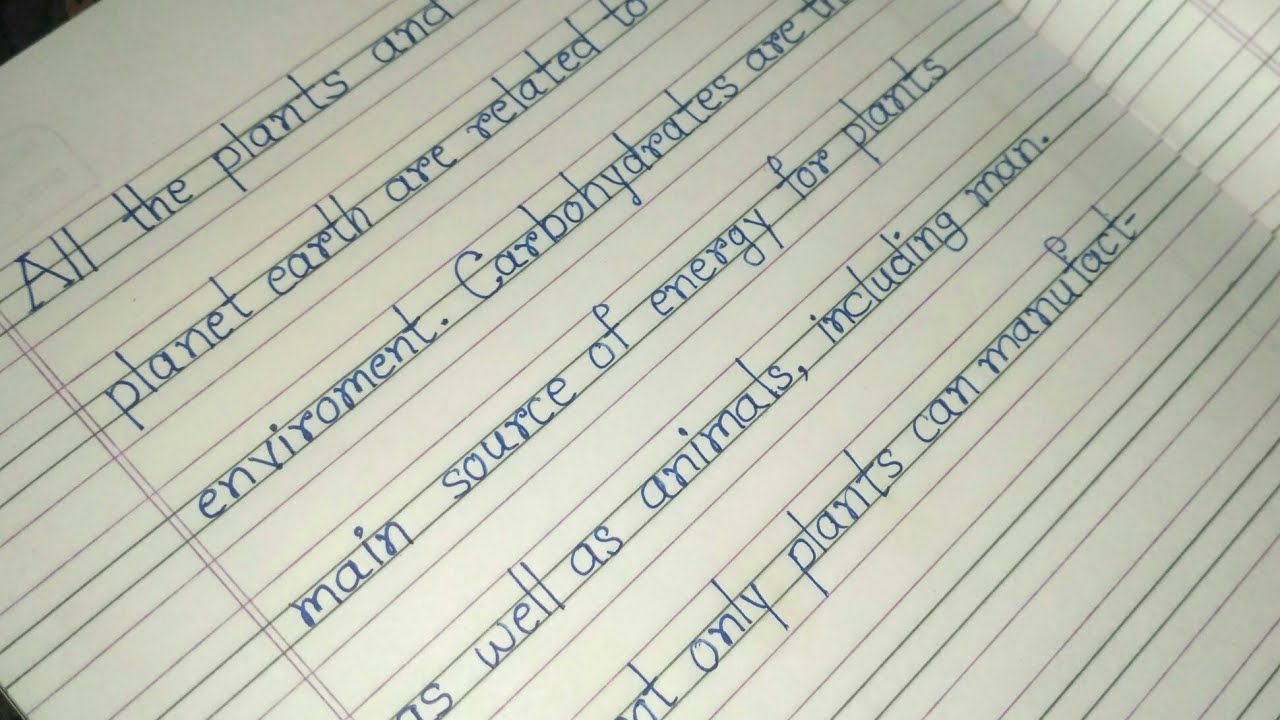 All the plants and
planet earth are related to
enviroment. Carbohydrates are
main source of energy for plants
as well as animals, including man.
only plants can manufact-